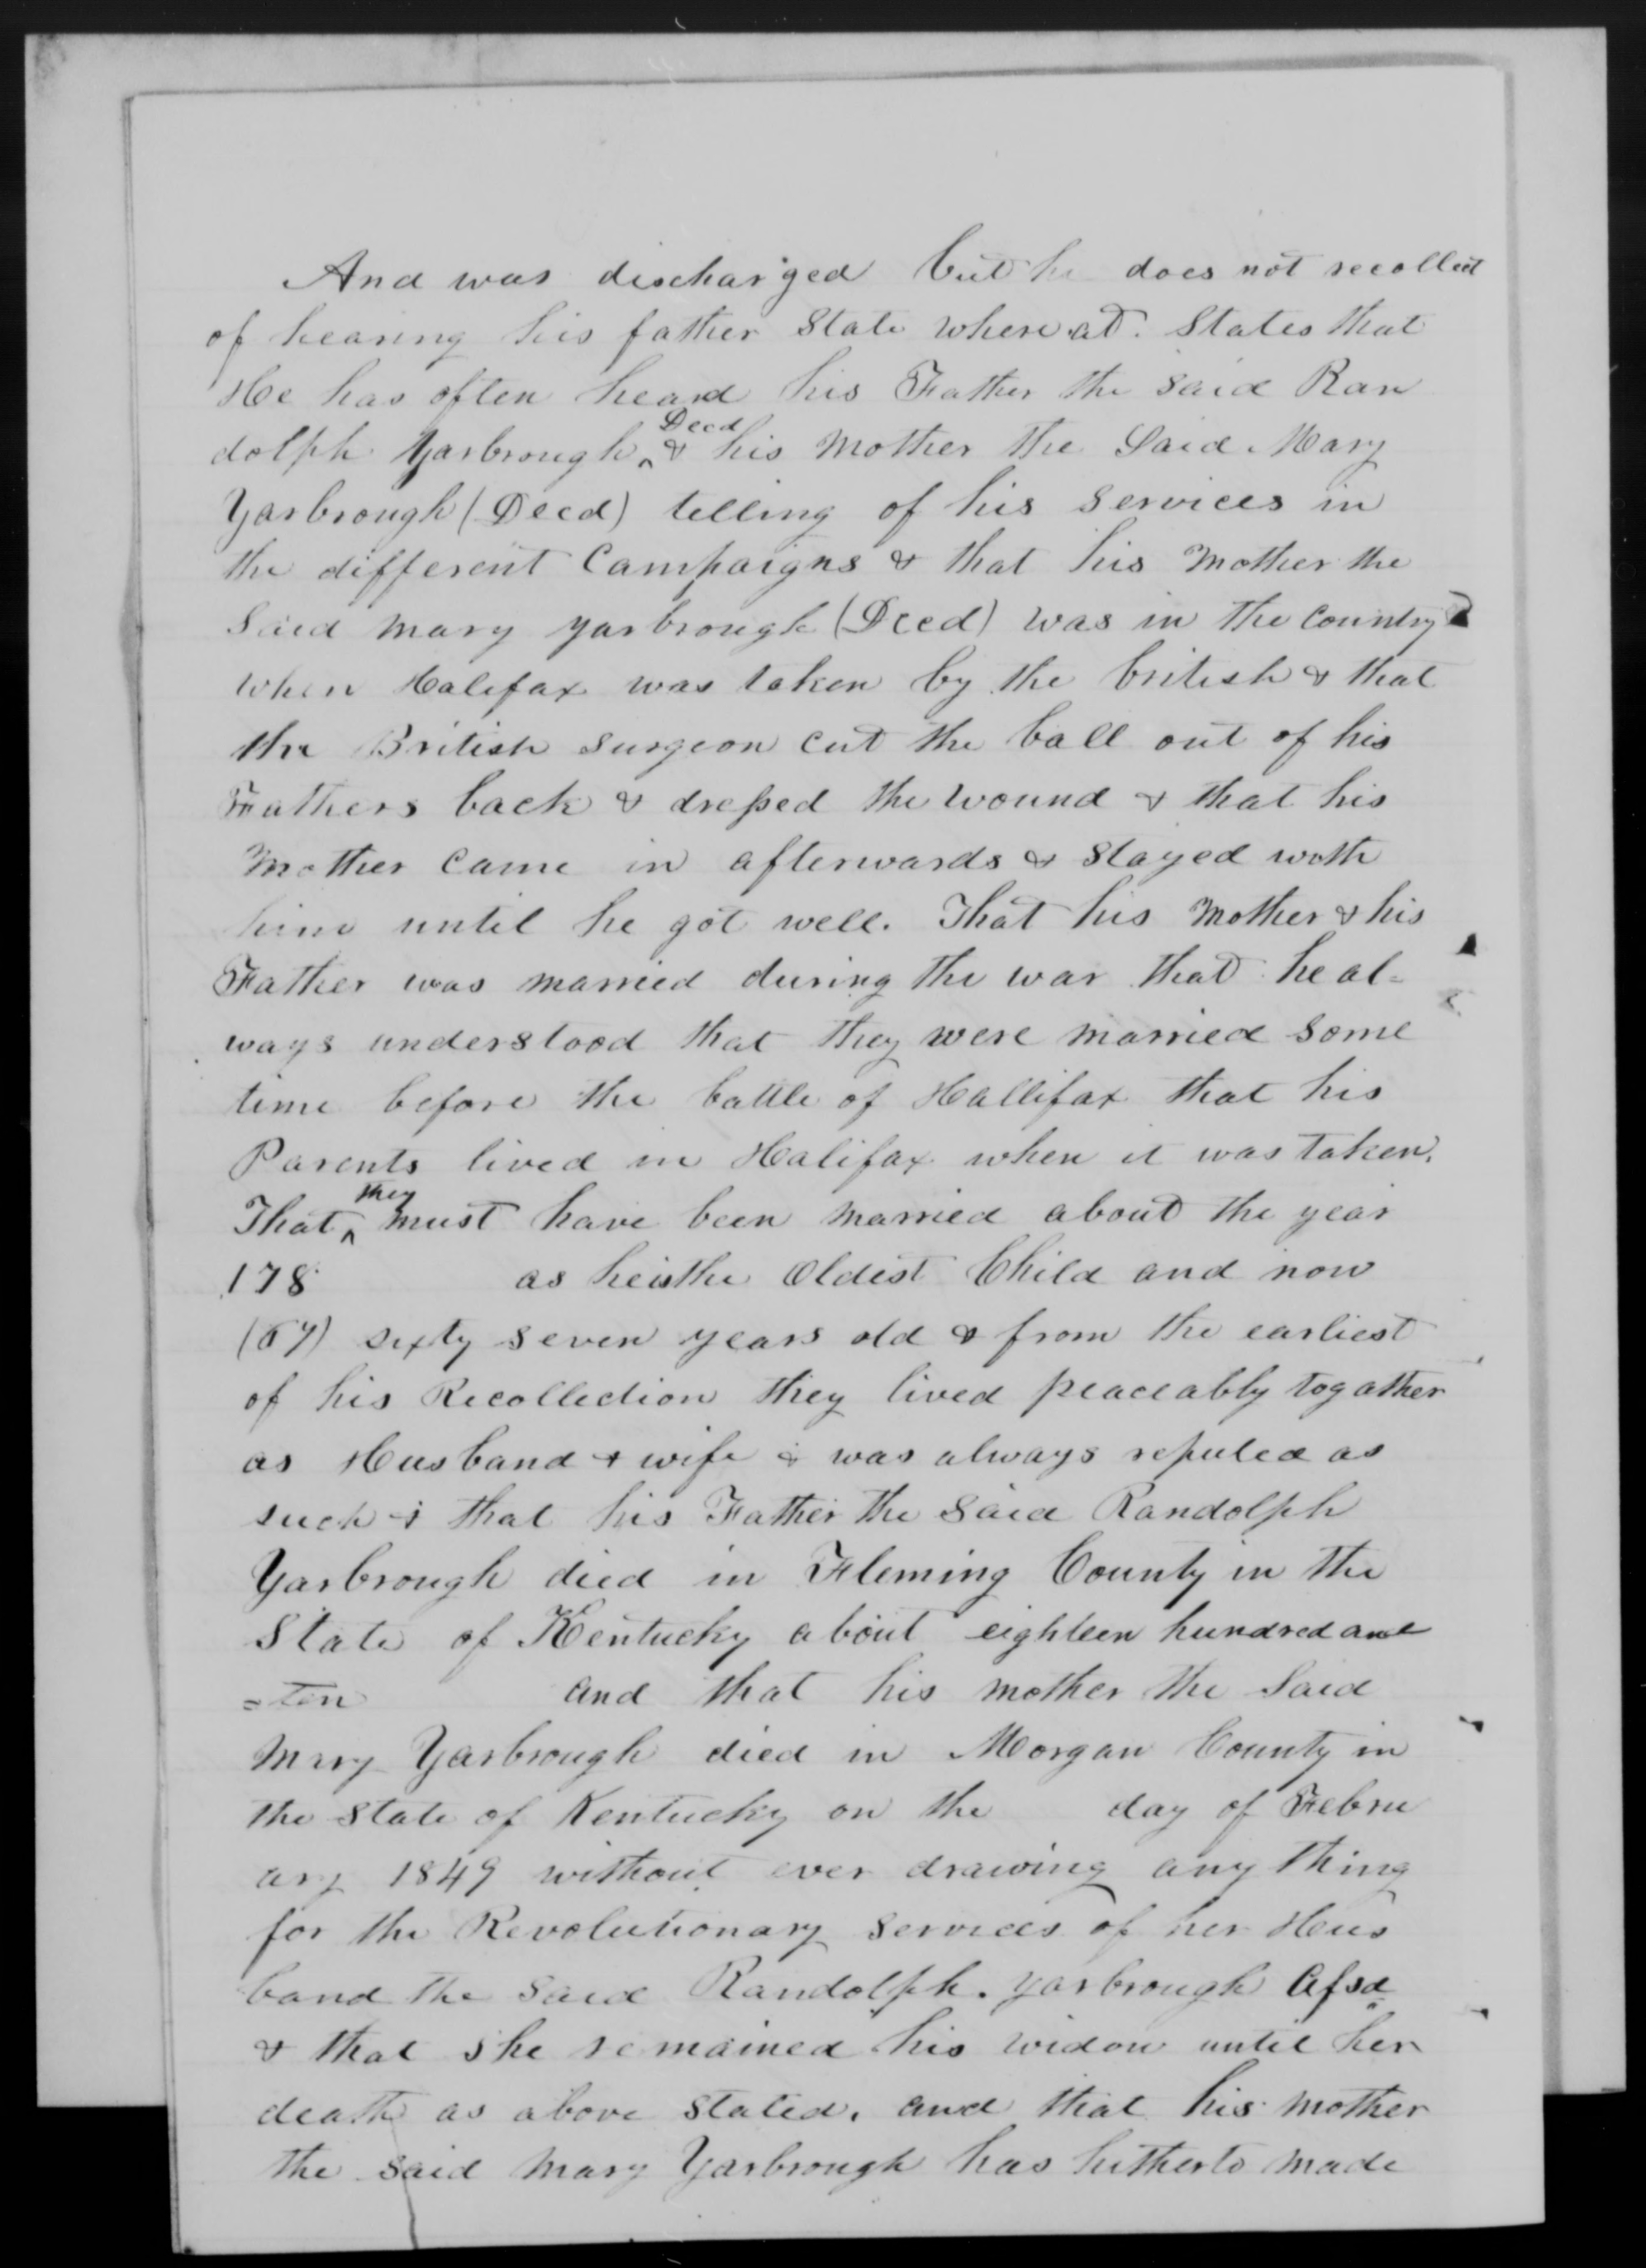 And was discharged but he does not recollect
of hearing his father State where at. States that
He has often heard his Father the said Ran
dolph Yarbrough ^Decd & his Mother the Said Mary
Yarbrough (Decd) telling of his services in
the different Campaigns & that his Mother the
Said Mary Yarbrough (Decd) was in the Country
when Halifax was taken by the british & that
the British surgeon cut the ball out of his
Fathers back & dressed the wound & that his
Mother came in afterwards & stayed with
him until he got well. That his Mother & his
Father was married during the war that he al=
ways understood that they were married some
time before the battle of Hallifax that his
Parents lived in Halifax when it was taken.
That ^they must have been married about the year
178 as he is the Oldest Child and now
(67) sixty seven years old & from the earliest
of his Recollection they lived peaceably togather
as Husband & wife & was always reputed as
such & that his Father the said Randolph
Yarbrough died in Fleming County in the
State of Kentucky about eighteen hundred and
=ten and that his mother the Said
Mary Yarbrough died in Morgan County in
the State of Kentucky on the day of Febru
ary 1849 without ever drawing any thing
for the Revolutionary services of her Hus
band the said Randolph. Yarbrough Afsd
& that she remained his widow until her
death as above stated. and that his mother
the said Mary Yarbrough has hitherto made